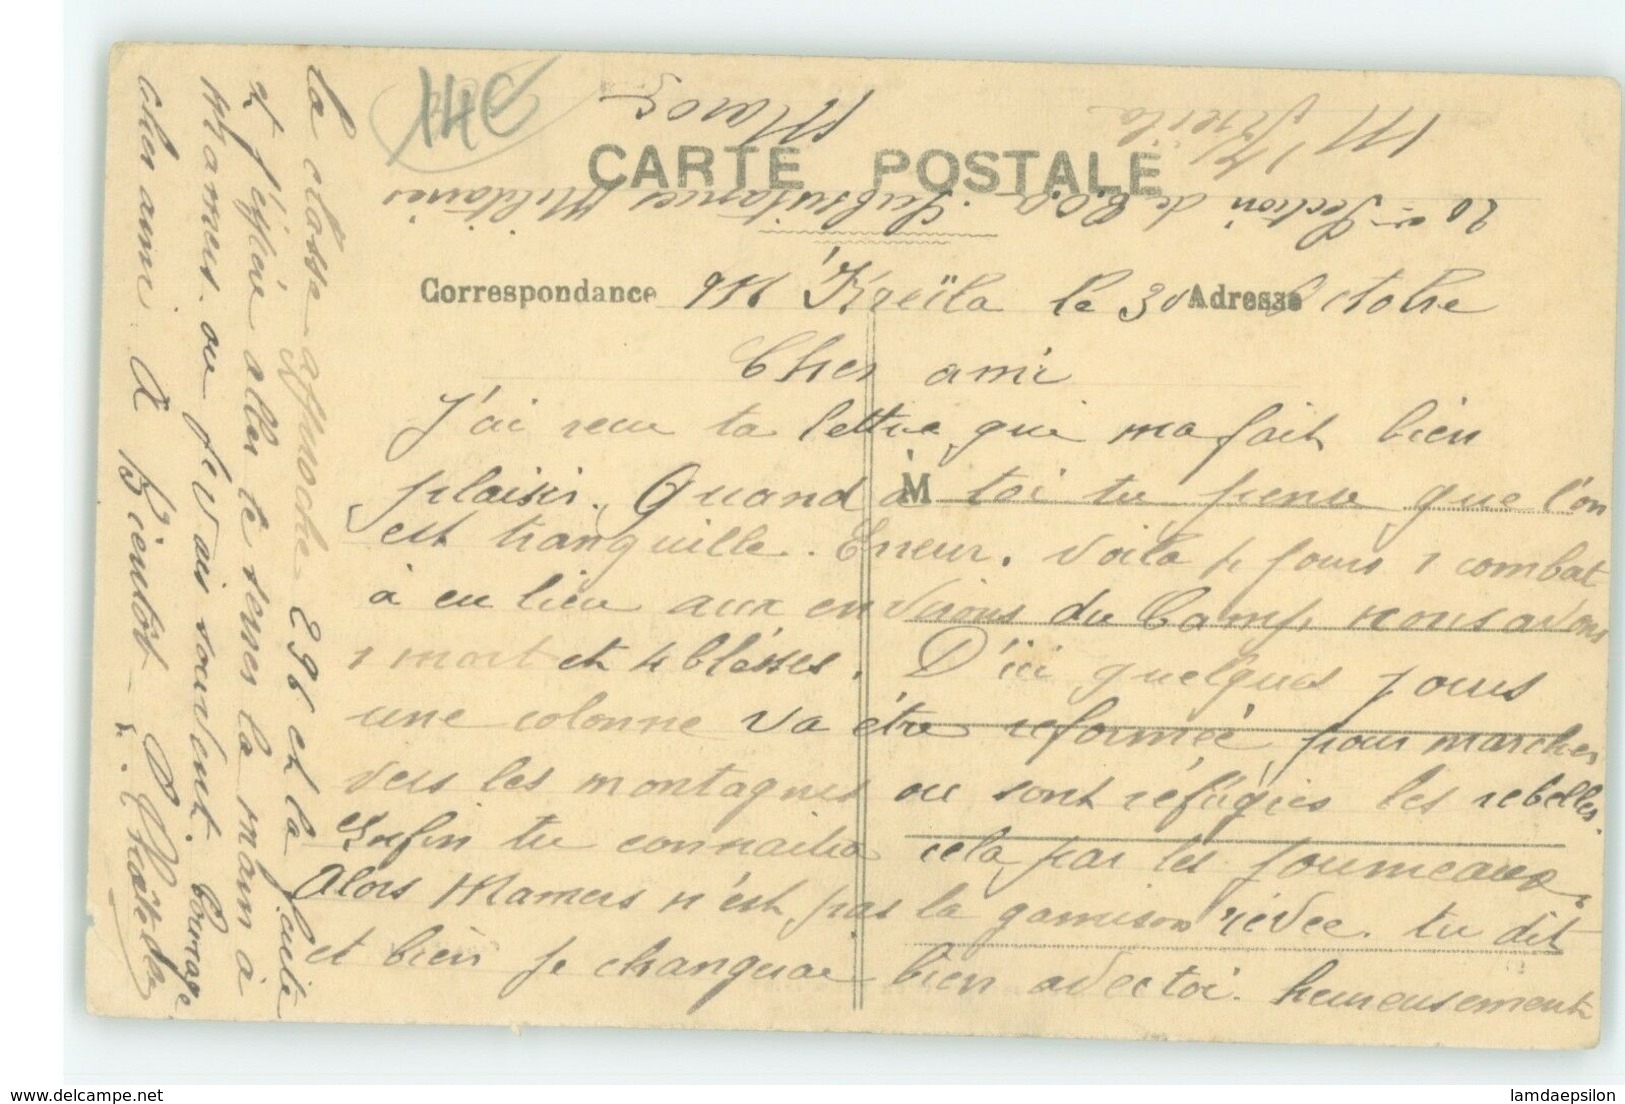 14€
CARTE POSTALE
M' Kreïla
Maroc
20e Section de C.O.A. Subsistances Militaires
Correspondance
Adresse
M
M' Kreïla le 30 Octobre
Cher ami
J'ai recu ta lettre qui ma fait bien
plaisir. Quand à toi tu pense que l'on
est tranquille. Erreur. Voila 4 jours 1 combat
à eu lieu aux environs du Camp, nous avons
1 mort et 4 blésses. D'ici quelques jours
une colonne va être reformée pour marcher
vers les montagnes ou sont réfugiés les rebelles.
Enfin tu connaitra cela par les journeaux.
Alors Mamers n'est pas la garnison rêvée. tu dit
et bien je changerai bien avec toi. heureusement
la classe approche 296 et la fuite
et j'espère aller te serrer la main à
Mamers. ou je vais souvent. Courage
cher ami A Bientôt